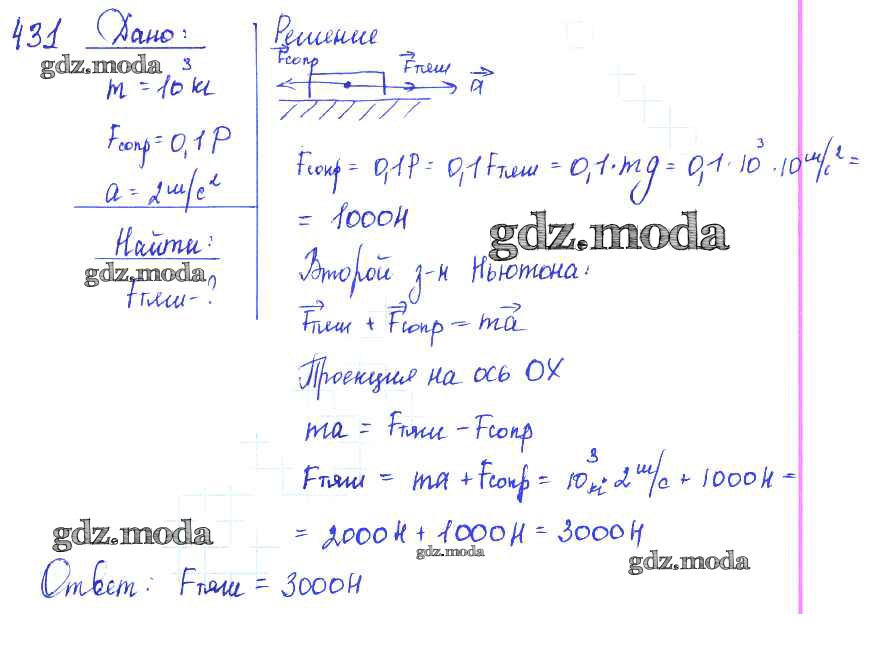 431 Дано:
gdz.moda
m = 10³ кг
Fсопр = 0,1P
a = 2 м/с²
Найти:
gdz.moda
Fтяги - ?
Решение
Fсопр Fтяги a
Fсопр = 0,1P = 0,1Fтяги = 0,1·mg = 0,1·10³·10 м/с² =
= 1000Н
gdz.moda
Второй з-н Ньютона:
Fтяги + Fсопр = ma
Проекция на ось OX
ma = Fтяги - Fсопр
Fтяги = ma + Fсопр = 10³ кг · 2 м/с + 1000Н =
= 2000Н + 1000Н = 3000Н
gdz.moda
gdz.moda
gdz.moda
Ответ: Fтяги = 3000Н